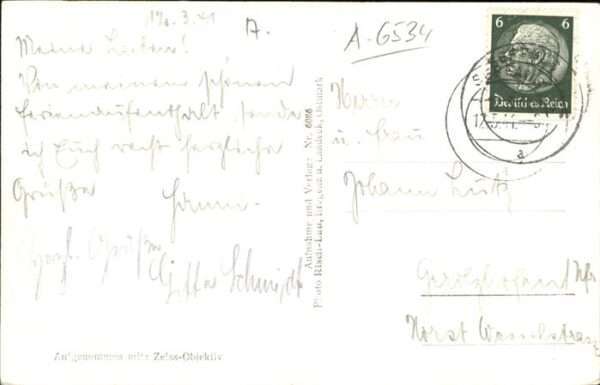 12.3.41
A.
A-6534
Meine Lieben!
Von meinem schönen
Ferienaufenthalt sende
ich Euch recht herzliche
Grüße Hanne.
Herzl. Grüße
Gitta Schmidt
Herrn
u. Frau
Johann Lutz
Gerolzhofen
Horst Wesselstrasse
6 6
Deutsches Reich
a
Aufnahme und Verlag: Nr. 6086
Photo Risch-Lau, Bregenz u. Landeck, Ostmark
Aufgenommen mit Zeiss-Objektiv